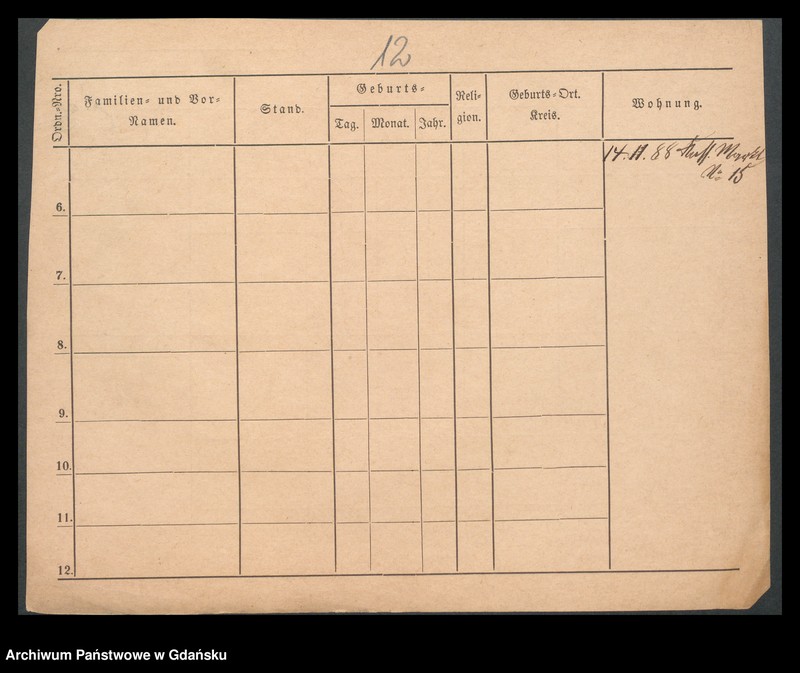 12
Ordn.-Nro.
Familien- und Vor-
Namen.
Stand.
Geburts-
Tag.
Monat.
Jahr.
Reli-
gion.
Geburts-Ort.
Kreis.
Wohnung.
14. 11. 88
No 15
6.
7.
8.
9.
10.
11.
12.
Archiwum Państwowe w Gdańsku